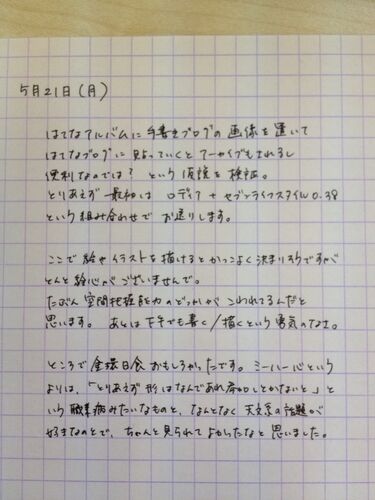 5月21日(月)
はてなアルバムに手書きブログの画像を置いて
はてなブログに貼っていくとアーカイブもされるし
便利なのでは? という仮説を検証。
とりあえず最初は ロディア + セブンライフスタイル 0.38
という組み合わせで お送りします。
ここで絵やイラストを描けるとかっこよく決まりそうですが
とんと絵心がございませんで。
たぶん空間把握能力のどっかがこわれてるんだと
思います。 あとは下手でも書く/描くという勇気のなさ。
ところで金環日食おもしろかったです。ミーハー心という
よりは、「とりあえず形はなんであれ参加しとかないと」と
いう職業病みたいなものと、なんとなく天文系の話題が
好きなので、ちゃんと見られてよかったなと思いました。